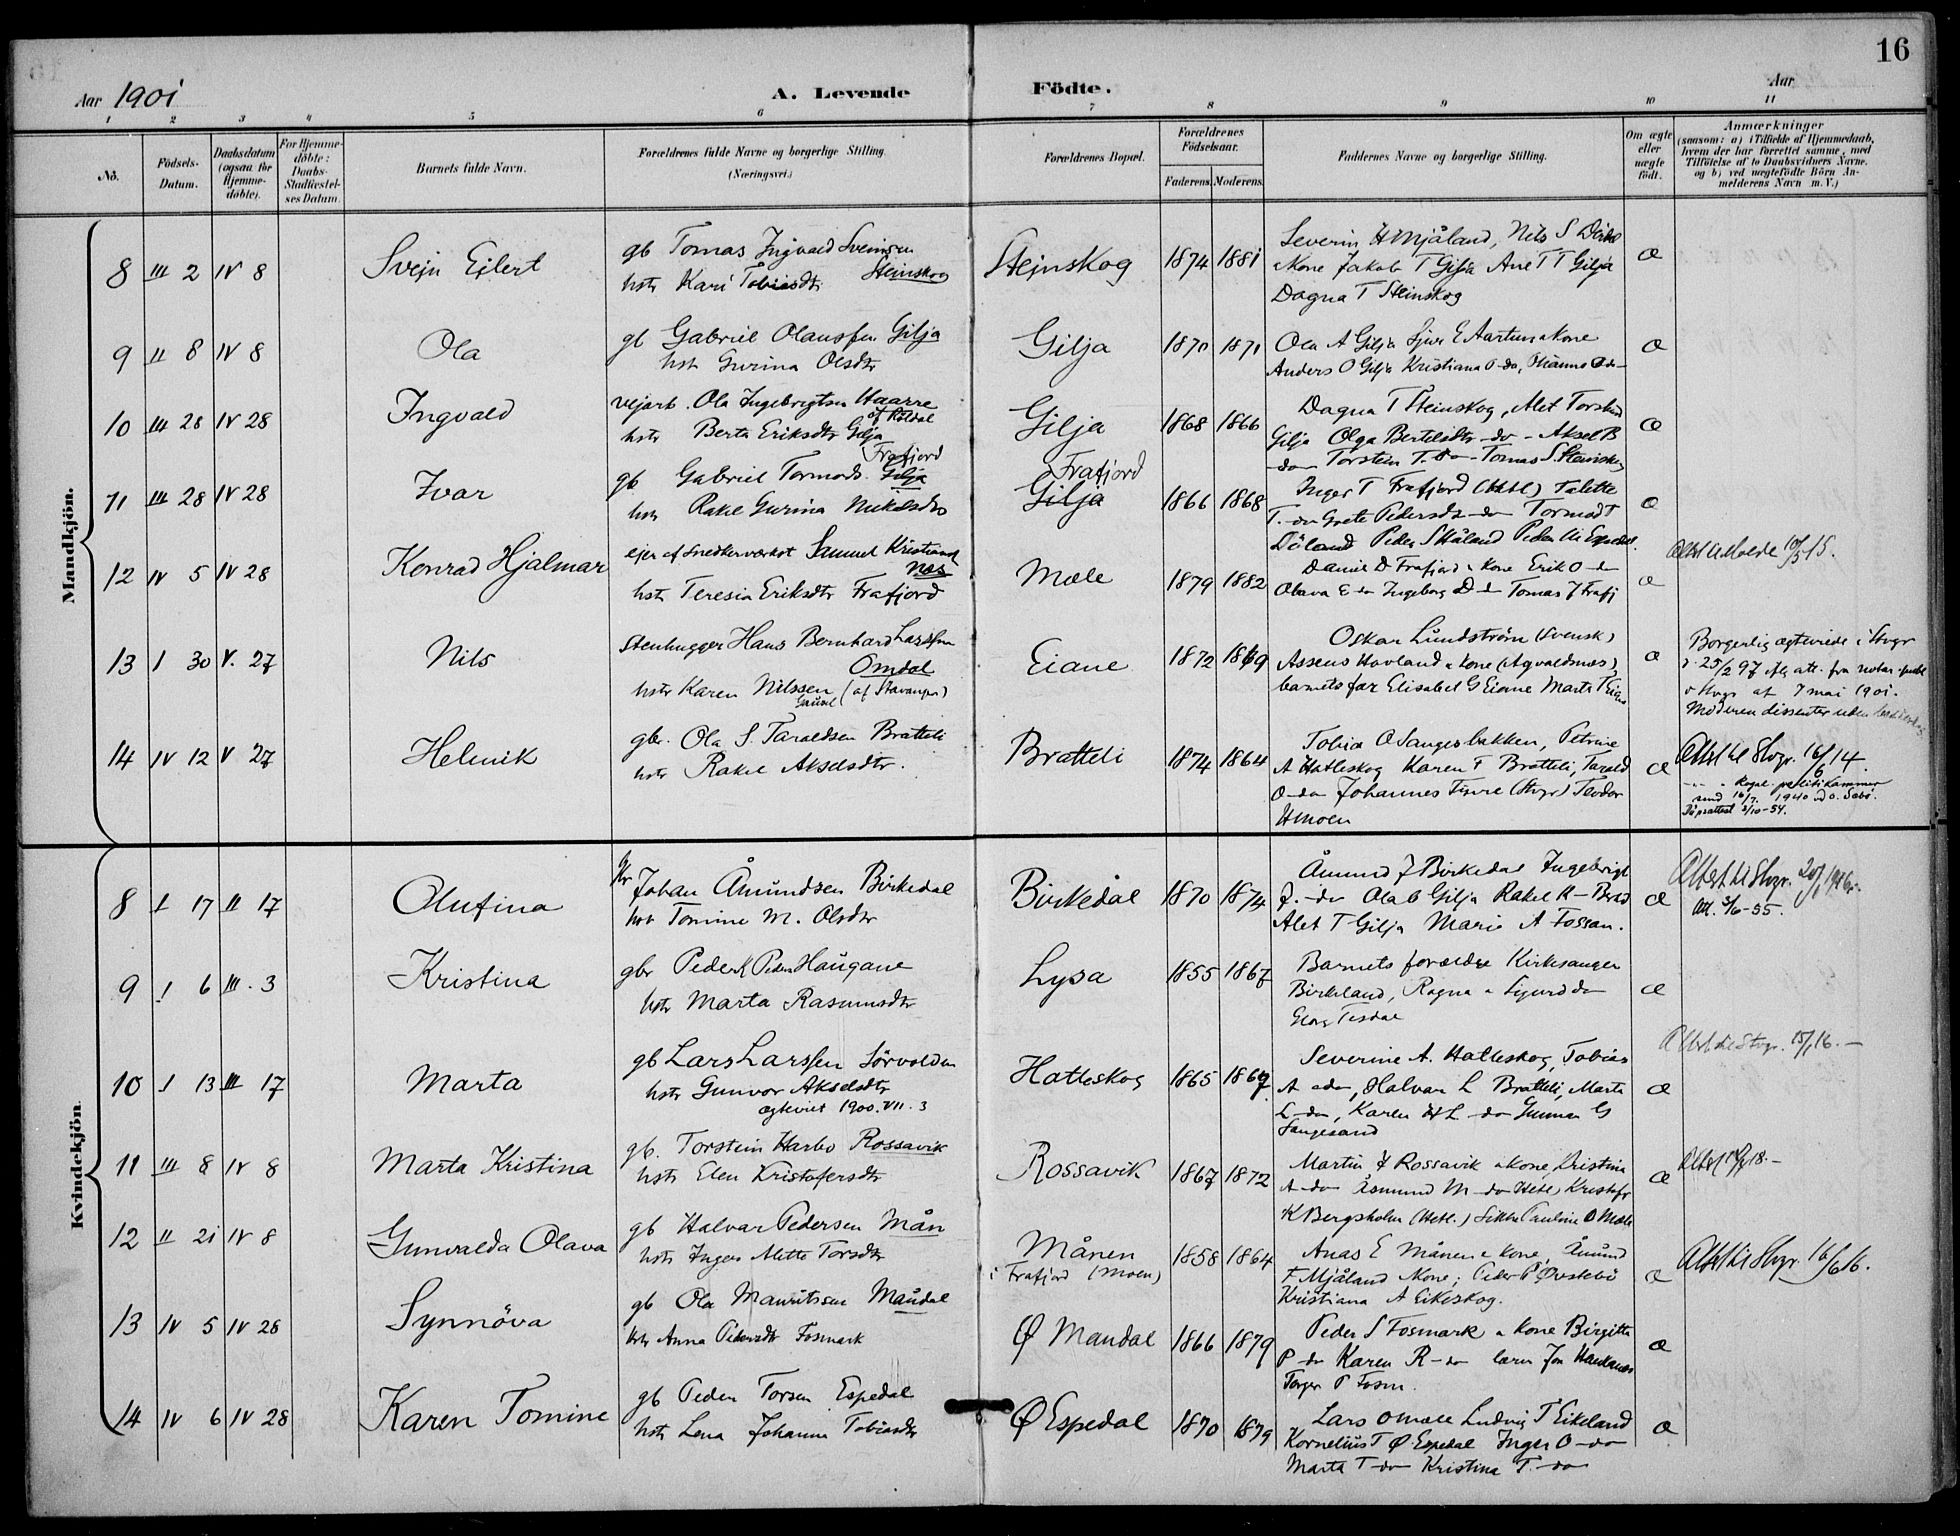 16
Aar 1901
A. Levende Födte.
Aar
1 2 3 4 5 6 7 8 9 10 11
No.
Födsels-Datum.
Daabsdatum (ogsaa for Hjemme-döbte).
For Hjemme-döbte: Daabs-Stadfæstel-ses Datum.
Barnets fulde Navn.
Forældrenes fulde Navne og borgerlige Stilling. (Næringsvei.)
Forældrenes Bopæl.
Forældrenes Födselsaar.
Faderens. Moderens.
Faddernes Navne og borgerlige Stilling.
Om ægte eller uægte födt.
Anmærkninger
(saasom: a) i Tilfælde af Hjemmedaab, hvem der har forrettet samme, med Tilföielse af to Daabsvidners Navne. og b) ved uægtefödte Börn An-melderens Navn m. V.)
Mandkjön.
8 III 2 IV 8 Svejn Ejlert
gb Tomas Ingvald Sveinsen Steinskog
hstr Kari Tobiasdtr
Stejnskog 1874 1881
Severin H Mjåland, Nils S
Kone Jakob T Gilja Ane T T Gilja
Dagna T Steinskog
æ
9 II 8 IV 8 Ola
gb Gabriel Olaussen Gilja
hstr Gurina Olsdtr
Gilja 1870 1871
Ola A Gilja Sjur E Aartun a Kone
Anders O Gilja Kristiana O do,
æ
10 III 28 IV 28 Ingvald
vejarb. Ola Ingebrigtsen Haarre
af Röldal
hstr Berta Eriksdtr Gilja
Gilja 1868 1866
Dagna T Steinskog, Alet Torstend
Gilja Olga Bertelsdtr do - Aksel B
do Torstein T. do - Tomas S Steinskog
æ
11 III 28 IV 28 Ivar
Frafjord
gb Gabriel Tormods. Gilja
hstr Rakel Gurina Mikkelsdtr
Frafjord
Gilja 1866 1868
Inger T Frafjord (Hetl) Talette
T. do Grete Pedersdtr do Tormod T
Peder S Håland Peder M Espedal.
æ
12 IV 5 IV 28 Konrad Hjalmar
ejer af Snedkerværkst Samuel Kristians
Næs
hstr Teresia Eriksdtr Frafjord
Mæle 1879 1882
Daniel D Frafjord a Kone Erik O do
Olava E do Ingeborg D do Tomas J Frafj
æ
13 I 30 V. 27 Nils
Stenhugger Hans Bernhard Larssen
Omdal
hstr Karen Nilssen (af Stavanger)
Eiane 1872 1869
Oskar Lundström (Svensk)
Assens Hovland a Kone (Agvaldsnæs)
barnets far Elisabet G Eiane Marta T
æ
Borgerlig ægteviede i Stvgr
d. 25/2 97 efter att. fra notar. publ
i Stvgr af 7 mai 1901.
Moderen dissenter uden
14 IV 12 V 27 Helmik
gbr. Ola S. Taraldsen Bratteli
hstr Rakel Akselsdtr.
Bratteli 1874 1864
Tobias O Sangesbakken, Petrine
A Hatleskog Karen T Bratteli, Tarald
O do Johannes Tjore (Stvgr) Teodor
H Moen
æ
Attest til Stvgr. 16/6 14.
Rogal. politikammer
send 16/7. 1940
Dåpsattest 2/10-54.
Kvindekjön.
8 I 17 II 17 Olufina
Johan Åmundsen Birkedal
hstr Tomine M. Olsdtr
Birkedal 1870 1874
Åmund J Birkedal Ingebrigt
J. do Ola O Gilja Rakel R -
Alet T Gilja Marie A Fossan.
æ
9 I 6 III. 3 Kristina
gbr Peder K Peders Haugane
hstr Marta Rasmusdtr
Lysa 1855 1867
Barnets forældre Kirkesanger
Birkeland, Ragna a Sigurd do
Georg Tesdal
æ
10 I 13 III 17 Marta
gb Lars Larssen Sörvolden
hstr Gunvor Akselsdtr
ægteviet 1900. VII. 3
Hatleskog 1865 1867
Severine A. Hatleskog, Tobias
A do, Halvar L Bratteli, Marta
L do, Karen H L do Gunnar G
Sangesand
æ
11 III 8 IV 8 Marta Kristina
gb. Torstein Harbo Rossavik
hstr Elen Kristofersdtr
Rossavik 1867 1872
Martin J Rossavik a Kone, Kristina
A do Åsmund M do Hetl, Kristofer
K Bergsholm (Hetl.) Sikke Pauline O Mæle
æ
12 II 21 IV 8 Gunvalda Olava
gb Halvar Pedersen Mån
hstr Inger Mette Torsdtr
Månen
i Frafjord (Moen) 1858 1864
Anas E Månen a Kone, Åmund
F Mjåland a Kone; Peder P Övstebö
Kristiana A Eikeskog.
æ
Attest til Stvgr. 16/6 16.
13 IV 5 IV 28 Synnöva
gb Ola Mauritsen Maudal
hstr Anna Pedersdtr Fosmark
Ø Maudal 1866 1879
Peder S Fosmark a Kone Birgitte
P do Karen R do lærer Jon
Torger P Fosm.
æ
14 IV 6 IV 28 Karen Tomine
gb Peder Torsen Espedal
hstr Lena Johanna Tobiasdtr
Ø Espedal 1870 1879
Lars O Mæle Ludvig T Eikeland
Kornelius T Ø. Espedal Inger O do
Marta T do Kristina T. do
æ